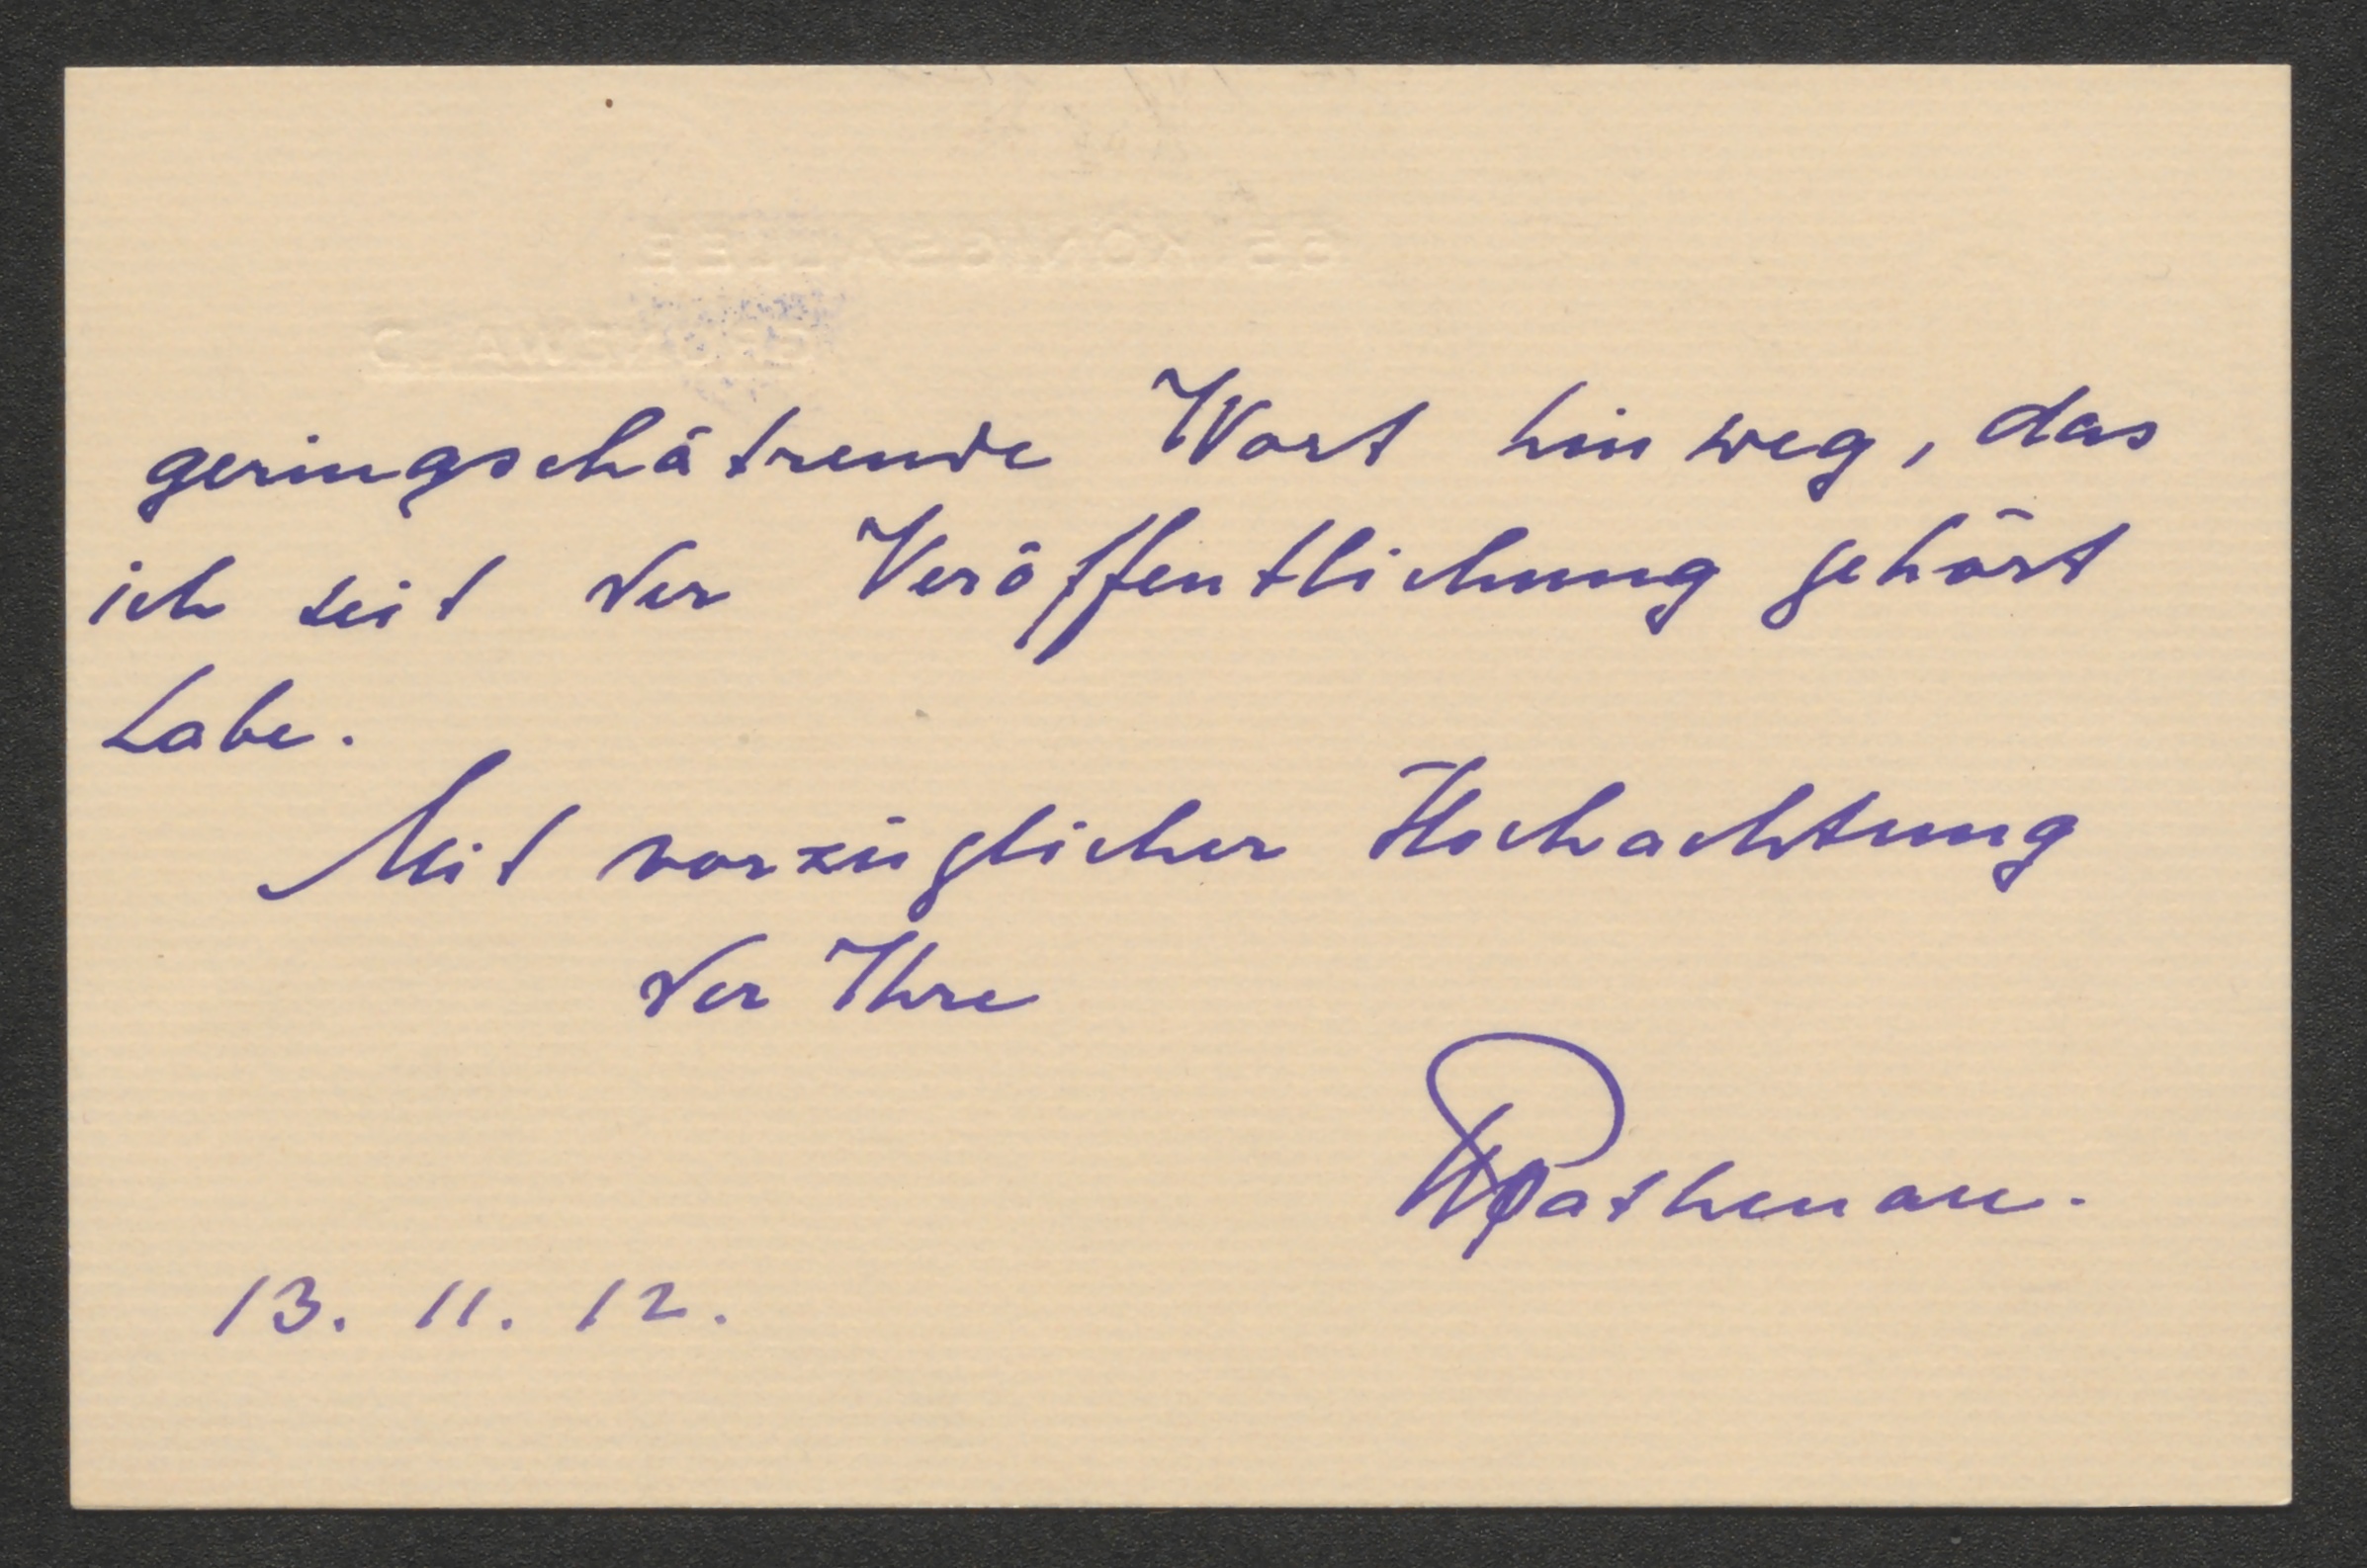 65 KÖNIGSALLEE
GRUNEWALD
geringschätzende Wort hinweg, das
ich seit der Veröffentlichung gehört
habe.
Mit vorzüglicher Hochachtung
der Ihre
WRathenau.
13. 11. 12.